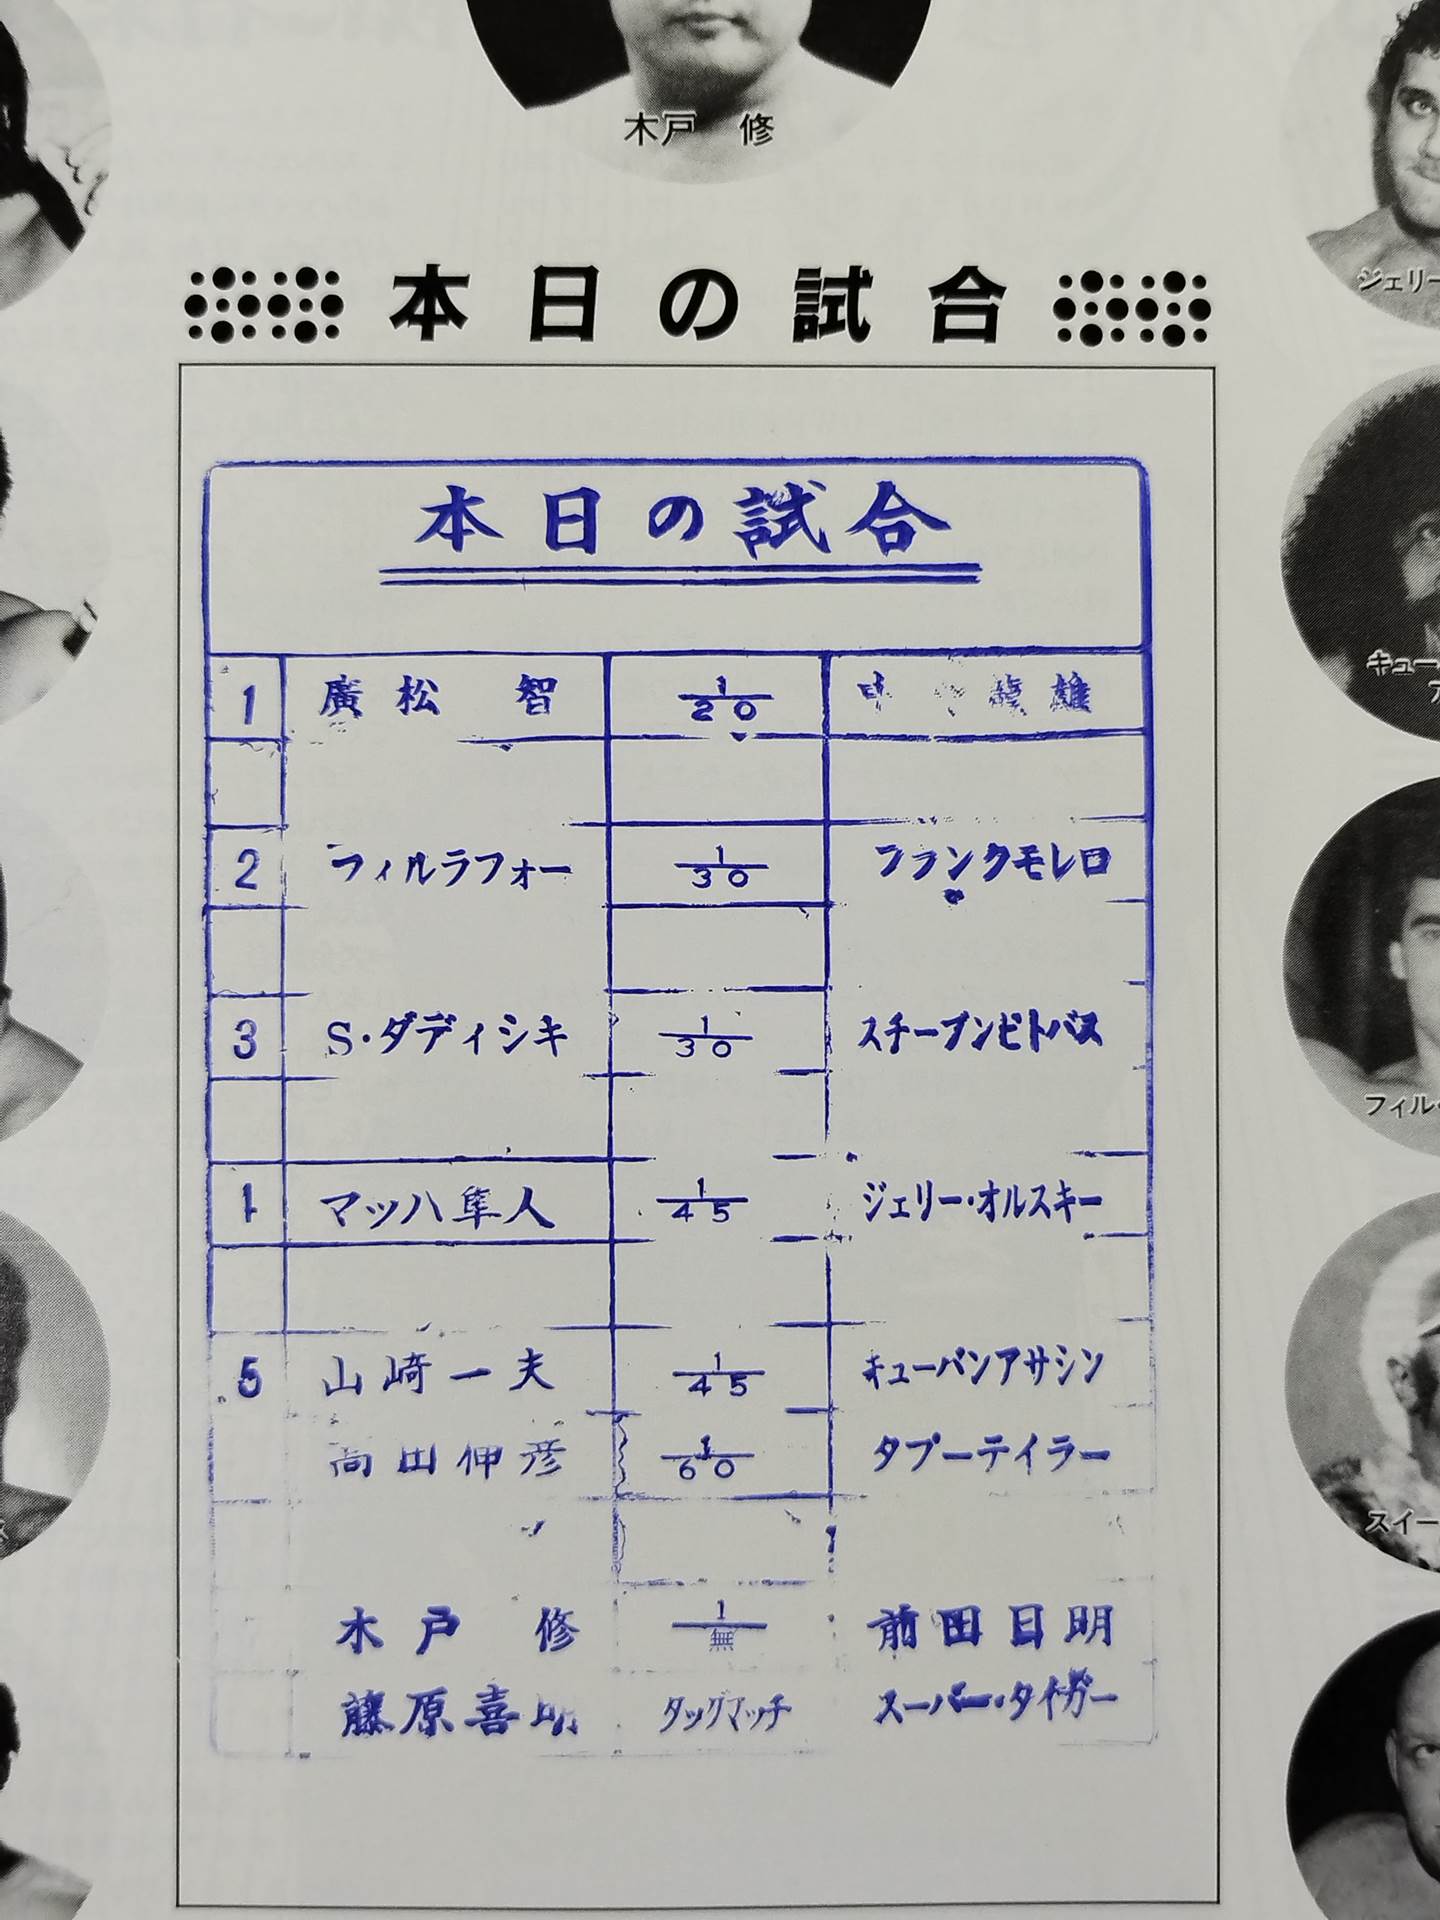 木戸 修
ジェリー
本日の試合
キュー
ア
フィル・
スイー
本日の試合
1 廣松 智 1/20 雄
2 フィルラフォー 1/30 フランクモレロ
3 S・ダディシキ 1/30 スチーブンピトバス
マッハ隼人 1/45 ジェリー・オルスキー
5 山崎一夫 1/45 キューバンアサシン
高田伸彦 1/60 タプーテイラー
木戸 修 1/無 前田日明
藤原喜明 タッグマッチ スーパー・タイガー